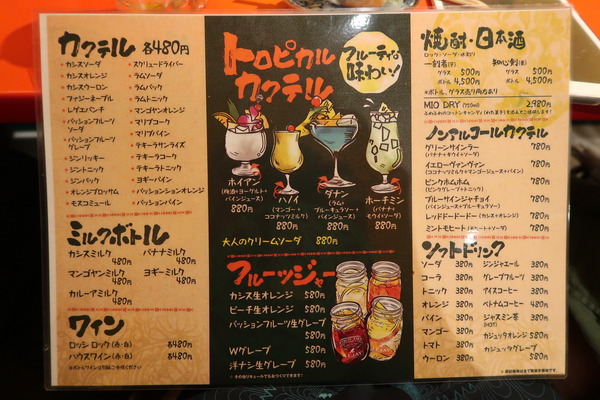 カクテル 各480円
カシスソーダ
カシスオレンジ
カシスウーロン
ファジーネーブル
レゲエパンチ
パッションフルーツ
ソーダ
パッションフルーツ
グレープ
ジンリッキー
ジントニック
ジンバック
オレンジブロッサム
モスコミュール
スクリュードライバー
ラムソーダ
ラムバック
ラムトニック
マンゴヤンオレンジ
マリブコーク
マリブパイン
テキーラサンライズ
テキーラコーク
テキーラトニック
ヨギーパイン
パッションシンオレンジ
パッションパイン
ミルクボトル
カシスミルク
480円
バナナミルク
480円
マンゴヤンミルク
480円
ヨギーミルク
480円
カルーアミルク
480円
ワイン
ロッシ ロック(赤・白) 各480円
ハウスワイン(赤・白) 各480円
トロピカル
カクテル
フルーティな
味わい!
ホイアン
(梅酒+ヨーグルト+
パインジュース)
880円
ハノイ
(マンゴー+
ココナッツミルク)
880円
ダナン
(ラム+
ブルーキュラソー+
パインジュース)
880円
ホーチミン
(バナナ+
モヒート+ソーダ)
880円
大人のクリームソーダ 880円
フルーッジャー
カシス生オレンジ 580円
ピーチ生オレンジ 580円
パッションフルーツ生グレープ
580円
Wグレープ 580円
洋ナシ生グレープ 580円
焼酎・日本酒
ロック・ソーダ・水わり
一刻者(芋)
グラス 500円
ボトル 4,500円
知心剣(麦)
グラス 500円
ボトル 4,500円
MIO DRY (750ml) 2,980円
ノンアルコールカクテル
グリーンサインラー 780円
(バナナ+キウイ+ソーダ)
イエローヴァンヴァン 780円
(ココナッツミルク+マンゴー+パイン)
ピンクホムホム 780円
(ピンクグレープ+トニック)
ブルーサインジャチョイ 780円
(パインジュース+ブルーキュラソー)
レッドドードドー (カシス+オレンジ) 780円
ミントモヒート (モヒート+ソーダ) 780円
ソフトドリンク
ソーダ 380円
コーラ 380円
トニック 380円
オレンジ 380円
パイン 380円
マンゴー 380円
トマト 380円
ウーロン 380円
ジンジャエール 380円
グレープフルーツ 380円
アイスコーヒー 380円
ベトナムコーヒー 480円
ジャスミン茶 380円
(HOT)
カジュッタオレンジ 580円
カジュッタグレープ
580円